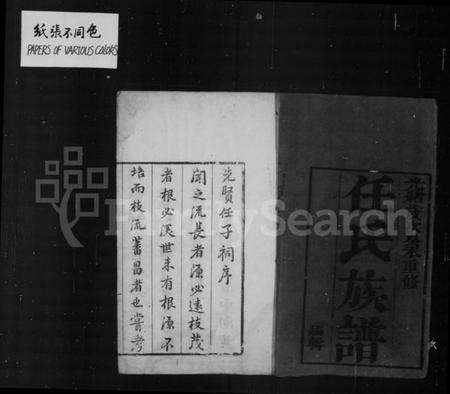 紙張不同色
PAPERS OF VARIOUS COLORS
重修
任氏族譜
先賢任子祠序
聞之流長者源必遠枝茂
者根必深世未有根源不
培而枝流蕃昌者也嘗考
FamilySearch